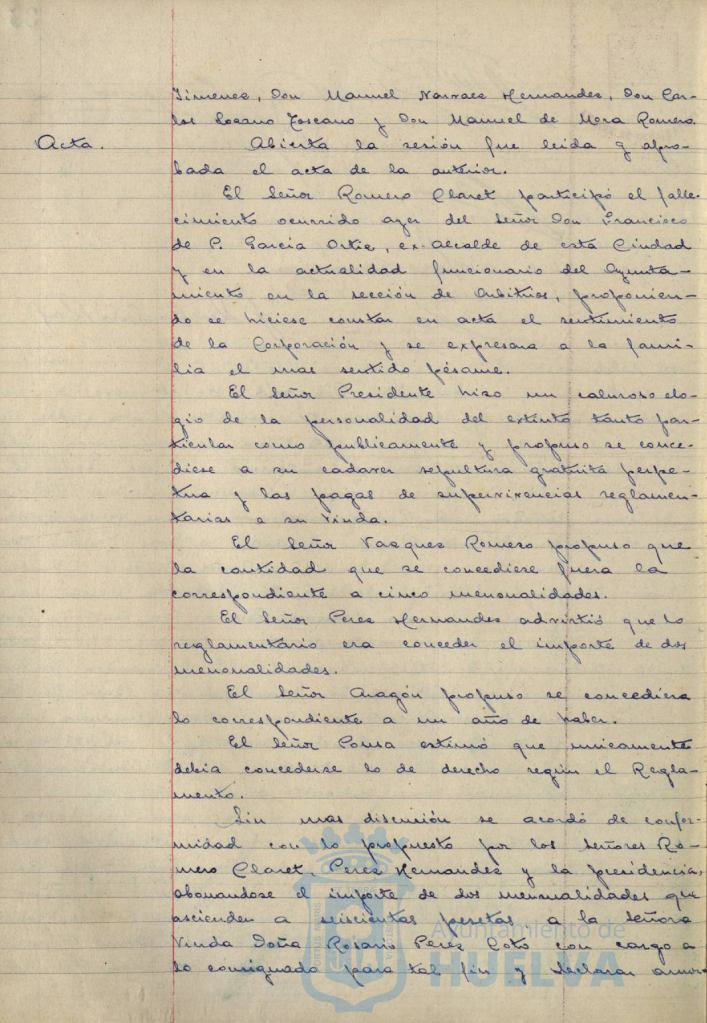 Jimenez, Don Manuel Narvaez Hernandez, Don Car-
los Lozano Toscano y Don Manuel de Mora Romero.
Acta. Abierta la sesión fue leida y apro-
bada el acta de la anterior.
El Señor Romero Claret participó el falle-
cimiento ocurrido ayer del Señor Don Francisco
de P. Garcia Ortiz, ex-alcalde de esta Ciudad
y en la actualidad funcionario del Ayunta-
miento en la sección de Arbitrios, proponien-
do se hiciese constar en acta el sentimiento
de la Corporación y se expresara a la fami-
lia el mas sentido pésame.
El Señor Presidente hizo un caluroso elo-
gio de la personalidad del extinto tanto par-
ticular como publicamente y propuso se conce-
diese a su cadaver sepultura gratuita perpe-
tua y las pagas de supervivencias reglamen-
tarias a su viuda.
El Señor Vazquez Romero propuso que
la cantidad que se concediese fuera la
correspondiente a cinco mensualidades.
El Señor Perez Hernandez advirtió que lo
reglamentario era conceder el importe de dos
mensualidades.
El Señor Aragón propuso se concediera
lo correspondiente a un año de haber.
El Señor Ponsa estimó que unicamente
debia concederse lo de derecho según el Regla-
mento.
Sin mas discusión se acordó de confor-
midad con lo propuesto por los señores Ro-
mero Claret, Perez Hernandez y la presidencia,
abonandose el importe de dos mensualidades que
ascienden a seiscientas pesetas a la Señora
Viuda Doña Rosario Perez Coto con cargo a
lo consignado para tal fin y declarar amor-
Ayuntamiento de
HUELVA